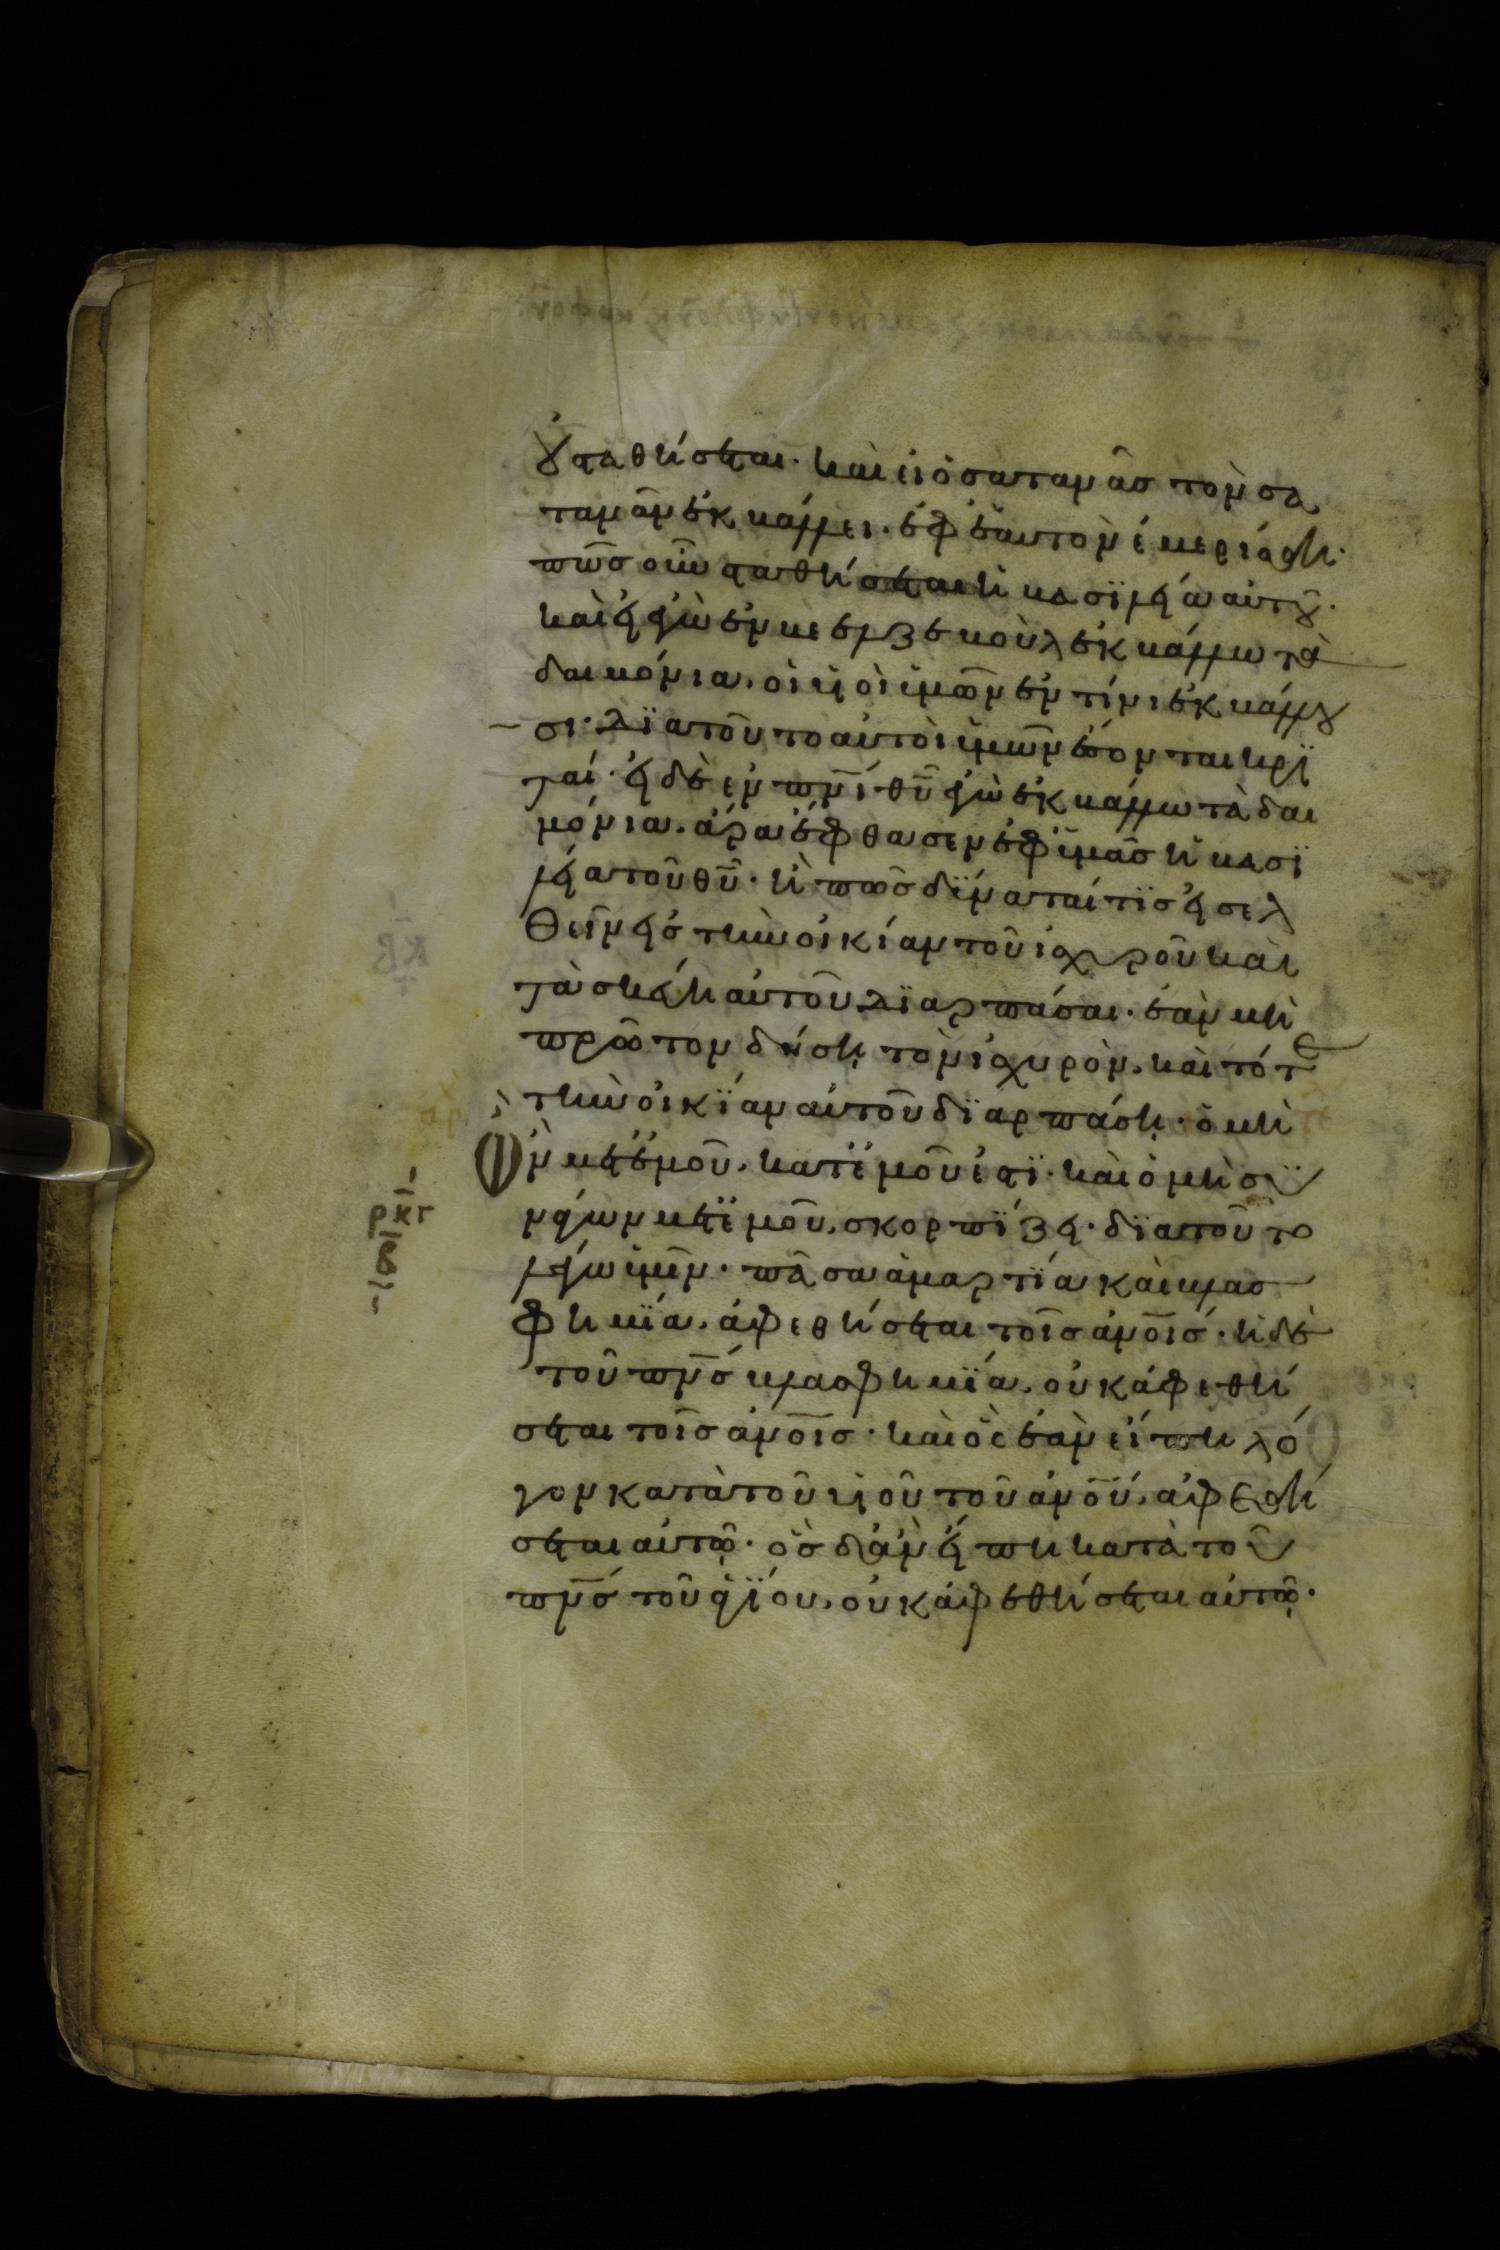 οὐ σταθήσεται· καὶ εἰ ὁ σατανᾶσ τὸν σα
τανᾶν ἐκβάλλει· ἐφ ἑαυτὸν ἐμερίσθη·
πῶσ οὖν σταθήσεται ἡ βασϊλεία αὐτοῦ·
καὶ εἰ ἐγὼ ἐν βεελζεβοὺλ ἐκβάλλω τὰ
δαιμόνια, οἱ υἱοὶ ὑμῶν ἐν τίνι ἐκβάλλου
σι· δϊατοῦτο αὐτοὶ ὑμῶν ἔσονται κρϊ
ταί· εἰ δὲ ἐν πνι θυ ἐγὼ ἐκβάλλω τὰ δαι
μόνια, ἄρα ἔφθασεν ἐφ ὑμᾶσ ἡ βασϊ
λεία τοῦ θυ· ἢ πῶσ δύναταί τϊσ εἰσελ
θεῖν εἰσ τὴν οἰκίαν τοῦ ἰσχυροῦ καὶ
τὰ σκεύη αὐτοῦ δϊαρπάσαι· ἐὰν μὴ
πρῶτον δήσῃ τὸν ἰσχυρὸν, καὶ τότε
τὴν οἰκΐαν αὐτοῦ δϊαρπάσῃ· ὁ μὴ
ὢν μετ ἐμοῦ, κατ ἐμοῦ ἐστϊ· καὶ ὁ μὴ συ
νάγων μετ ἐμοῦ, σκορπΐζει· δϊατοῦτο
λέγω ὑμῖν· πᾶσα ἁμαρτΐα καὶ βλασ
φημΐα, ἀφεθήσεται τοῖσ ανοισ· ἡ δὲ
τοῦ πνσ βλασφημΐα, οὐκ ἀφεθή
σεται τοῖσ ανοισ· καὶ ὃς ἐὰν εἴπη λό
γον κατὰ τοῦ υἱοῦ τοῦ ανου, ἀφεθή
σεται αὐτῷ· ὃσ δ ἂν εἴπη κατὰ τοῦ
πνσ τοῦ ἁγΐου, οὐκ ἀφεθήσεται αὐτῷ·
ρκγ